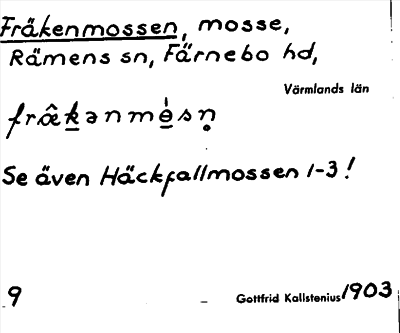 Fräkenmossen, mosse,
Rämens sn, Färnebo hd,
Värmlands län
frâ̈k̠ənmè̠sn̥
Se även Häckfallmossen 1-3!
9
Gottfrid Kallstenius 1903